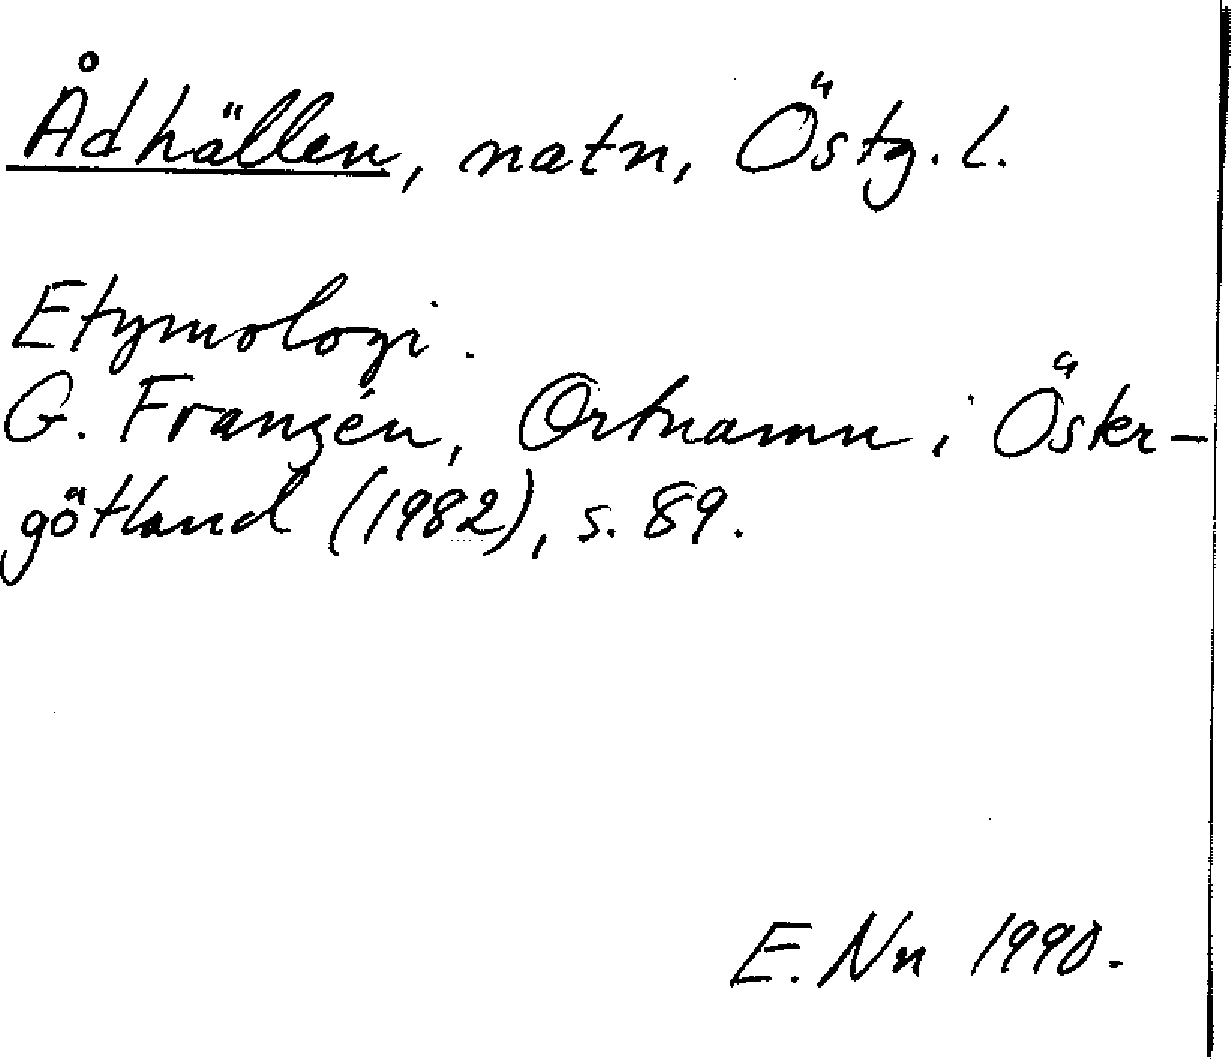 Ådhällen, natn, Östg. l.
Etymologi.
G. Franzén, Ortnamn i Öster-
götland (1982), s. 89.
E. Nn 1990.